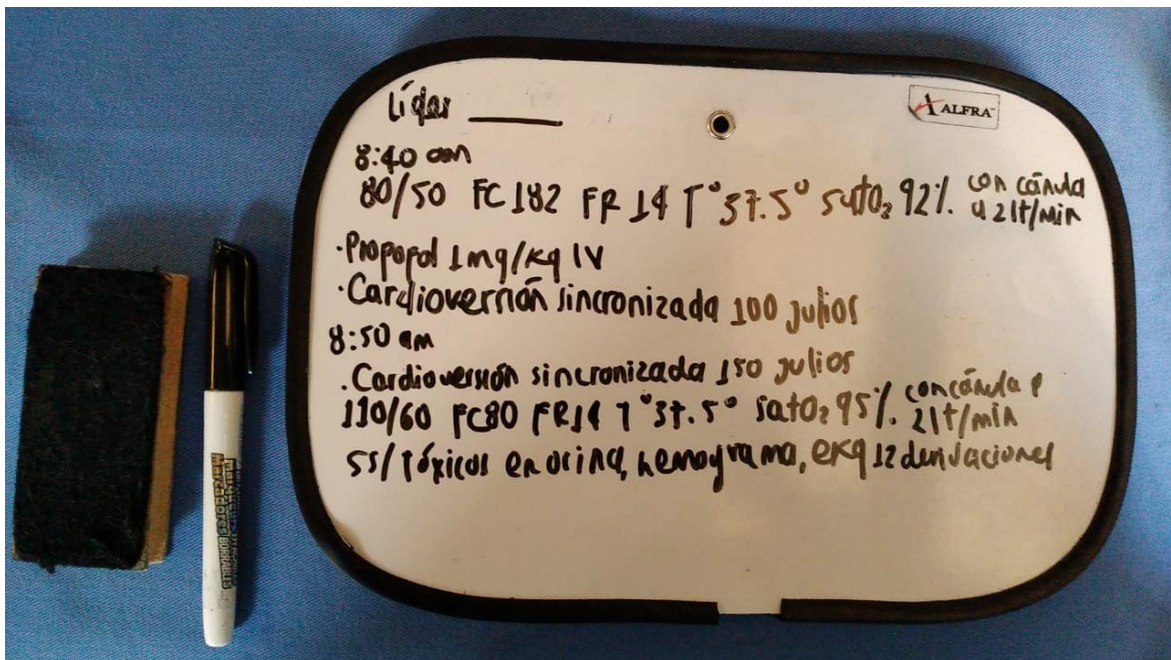 Líder ____
ALFRA
8:40 am
80/50 FC 182 FR 14 T° 37.5° satO₂ 92%. con cánula
a 2lt/min
·Propofol 1mg/kg IV
·Cardioversión sincronizada 100 julios
8:50 am
.Cardioversión sincronizada 150 julios
110/60 FC80 FR14 T°37.5° satO₂ 95%. con cánula
2lt/min
SS/ tóxicos en orina, hemograma, ekg 12 derivaciones
BORRABLES